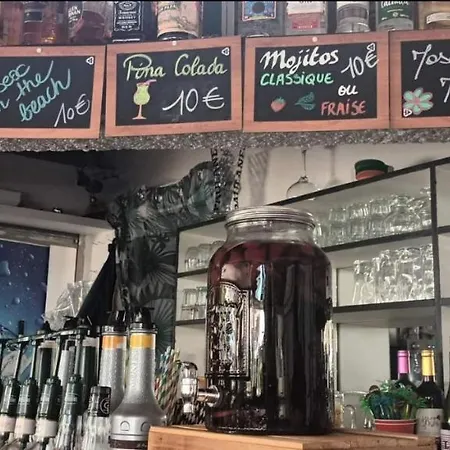 the beach
10€
Pina Colada
10€
Mojitos
CLASSIQUE
10€
ou
FRAISE